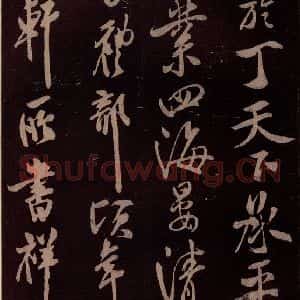 於丁天下承平
業四海晏清
禮部頃年
軒所書祥
Shufawang.CN